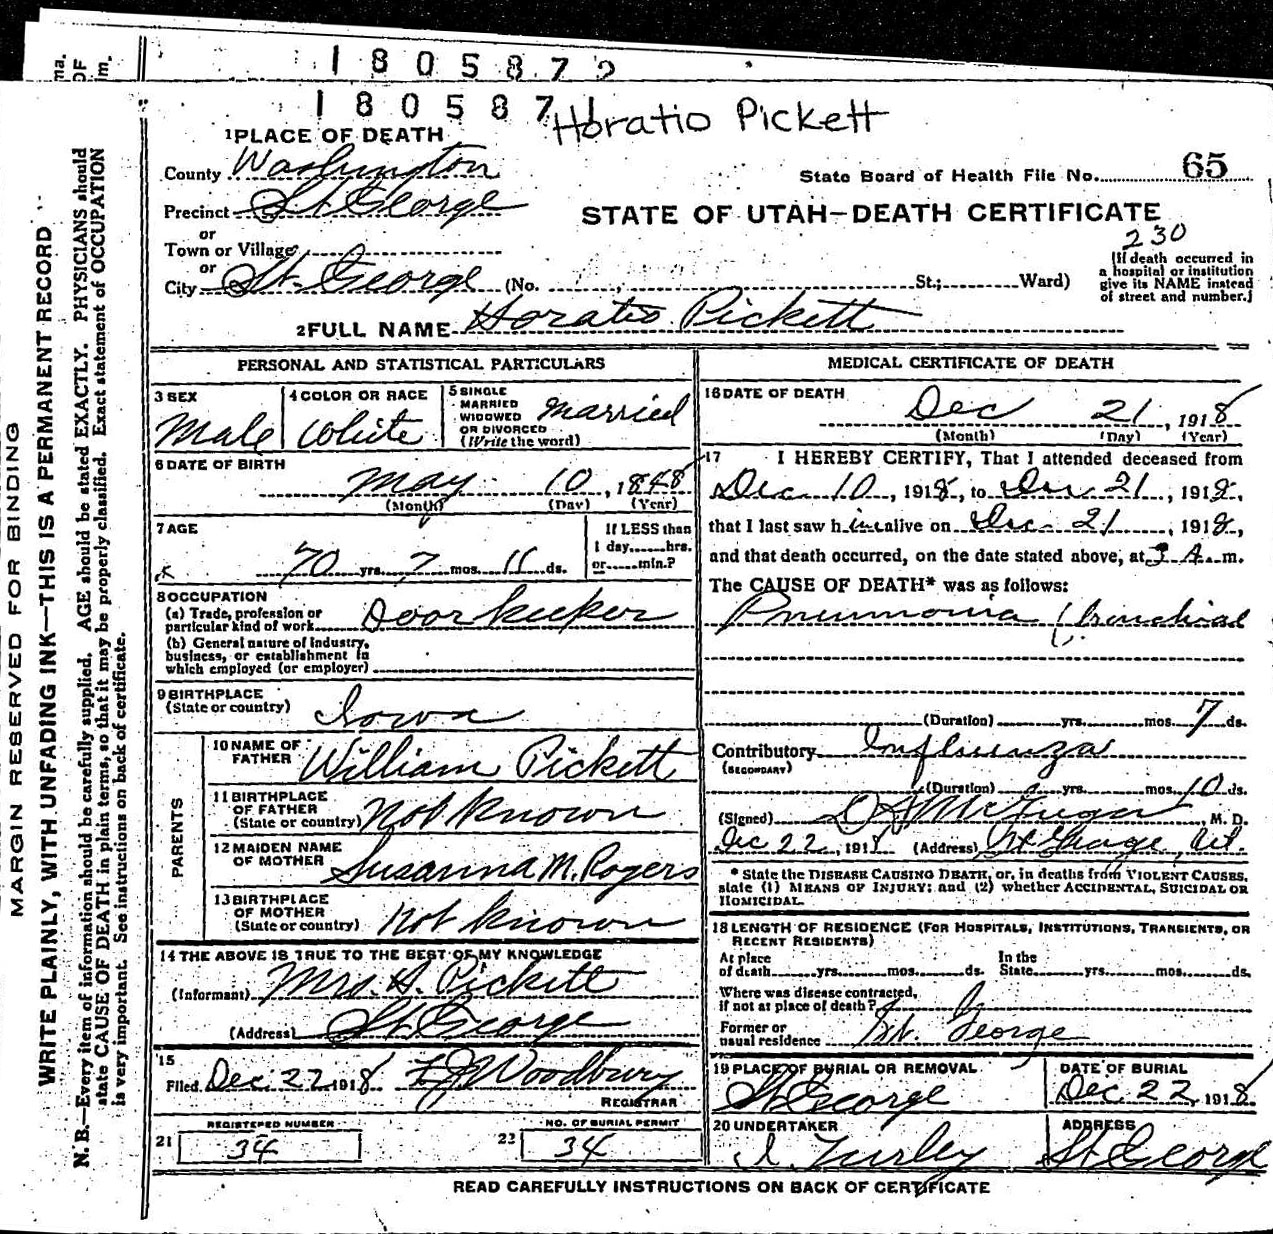 ma.
OF
m.
1 8 0 5 8 7 2
1 8 0 5 8 7 1
Horatio Pickett
1 PLACE OF DEATH
County Washington
State Board of Health File No. 65
Precinct St George
STATE OF UTAH—DEATH CERTIFICATE
or
Town or Village
230
or
City St. George (No. St.; Ward)
(If death occurred in
a hospital or institution
give its NAME instead
of street and number.)
2 FULL NAME Horatio Pickett
MARGIN RESERVED FOR BINDING
WRITE PLAINLY, WITH UNFADING INK—THIS IS A PERMANENT RECORD
N. B.—Every item of information should be carefully supplied. AGE should be stated EXACTLY. PHYSICIANS should
state CAUSE OF DEATH in plain terms, so that it may be properly classified. Exact statement of OCCUPATION
is very important. See instructions on back of certificate.
PERSONAL AND STATISTICAL PARTICULARS
3 SEX
Male
4 COLOR OR RACE
White
5 SINGLE
MARRIED
WIDOWED
OR DIVORCED
(Write the word)
married
6 DATE OF BIRTH
May 10, 1848
(Month) (Day) (Year)
7 AGE
70 yrs. 7 mos. 11 ds.
If LESS than
1 day......hrs.
or......min.?
8 OCCUPATION
(a) Trade, profession or
particular kind of work Doorkeeper
(b) General nature of industry,
business, or establishment in
which employed (or employer)
9 BIRTHPLACE
(State or country) Iowa
PARENTS
10 NAME OF
FATHER William Pickett
11 BIRTHPLACE
OF FATHER
(State or country) Not known
12 MAIDEN NAME
OF MOTHER Susanna M. Rogers
13 BIRTHPLACE
OF MOTHER
(State or country) Not known
14 THE ABOVE IS TRUE TO THE BEST OF MY KNOWLEDGE
(Informant) Mrs. H. Pickett
(Address) St. George
15
Filed Dec 22 1918 Woodbury
REGISTRAR
REGISTERED NUMBER
21 34
NO. OF BURIAL PERMIT
22 34
MEDICAL CERTIFICATE OF DEATH
16 DATE OF DEATH
Dec 21, 1918
(Month) (Day) (Year)
17 I HEREBY CERTIFY, That I attended deceased from
Dec 10, 1918, to Dec 21, 1918,
that I last saw him alive on Dec 21, 1918,
and that death occurred, on the date stated above, at 3 A. m.
The CAUSE OF DEATH* was as follows:
Pneumonia (bronchial
(Duration) yrs. mos. 7 ds.
Contributory Influenza
(SECONDARY)
(Duration) yrs. mos. 10 ds.
(Signed) McGregor, M. D.
Dec 22, 1918 (Address) St George, Ut.
* State the DISEASE CAUSING DEATH, or, in deaths from VIOLENT CAUSES,
state (1) MEANS OF INJURY; and (2) whether ACCIDENTAL, SUICIDAL OR
HOMICIDAL.
18 LENGTH OF RESIDENCE (FOR HOSPITALS, INSTITUTIONS, TRANSIENTS, OR
RECENT RESIDENTS)
At place
of death yrs. mos. ds.
In the
State yrs. mos. ds.
Where was disease contracted,
if not at place of death?
Former or
usual residence St. George
19 PLACE OF BURIAL OR REMOVAL
St George
DATE OF BURIAL
Dec 22, 1918
20 UNDERTAKER
Turley
ADDRESS
St George
READ CAREFULLY INSTRUCTIONS ON BACK OF CERTIFICATE